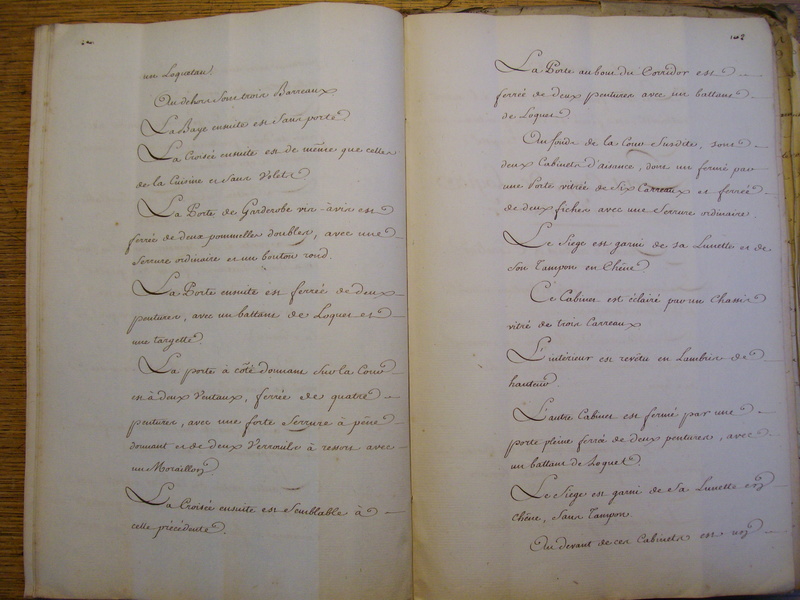 un Loqueteau
Au dehors sont trois Barreaux
La Baye ensuite est sans porte.
La Croisée ensuite est de même que celles
de la Cuisine et sans Volets
La Porte de Garderobe vis-à-vis est
ferrée de deux pommelles doubles, avec une
Serrure ordinaire et un bouton rond.
La Porte ensuite est ferrée de deux
pentures, avec un battant de Loquet et
une targette.
La porte à côté donnant sur la Cour
est à deux Ventaux, ferrée de quatre
pentures, avec une forte Serrure à pêne
donnant et de deux Verrouils à ressort avec
un Moraillon
La Croisée ensuite est Semblable à
celle précédente.
La Porte au bout du Corridor est
ferrée de deux pentures avec un battant
de Loquet
Au fonds de la Cour Susdite, sont
deux Cabinets d'aisance, dont un fermé par
une Porte vitrée de Six Carreaux et ferrée
de deux fiches avec une Serrure ordinaire.
Le Siege est garni de sa Lunette et de
Son Tampon en Chêne
Ce Cabinet est éclairé par un Chassis
vitré de trois Carreaux
L'intérieur est revêtu en Lambris de
hauteur
L'autre Cabinet est fermé par une
porte pleine ferrée de deux pentures, avec
un battant de Loquet.
Le Siege est garni de Sa Lunette en
Chêne, Sans Tampon.
Au devant de ces Cabinets est un